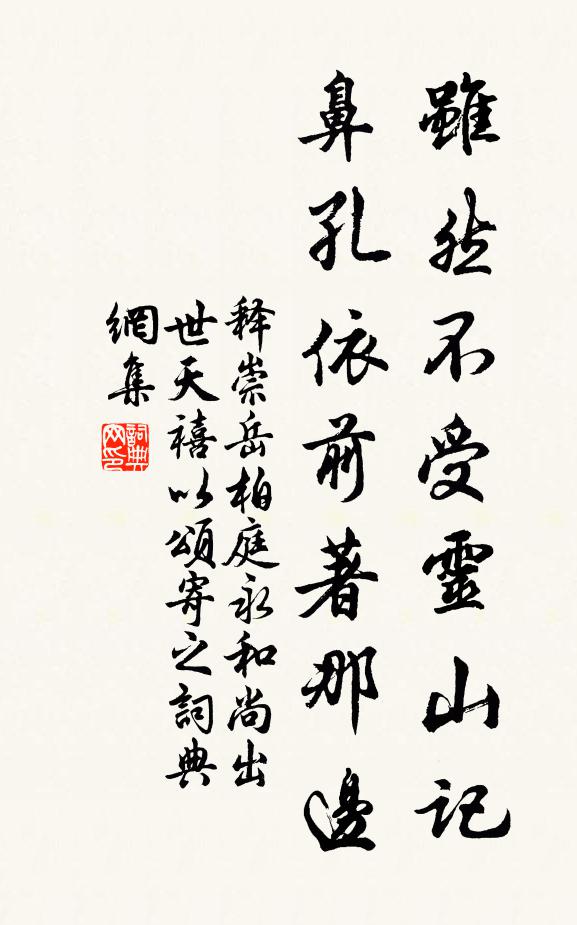 雖然不受靈山記
鼻孔依前著那邊
释崇岳柏庭永和尚出
世天禧以頌寄之詞典
網集
詞典
网印